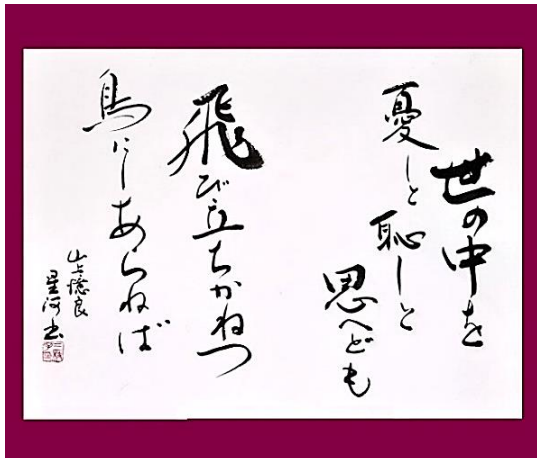 世の中を
憂しと恥しと
思へども
飛び立ちかねつ
鳥にしあらねば
山上憶良
星河書